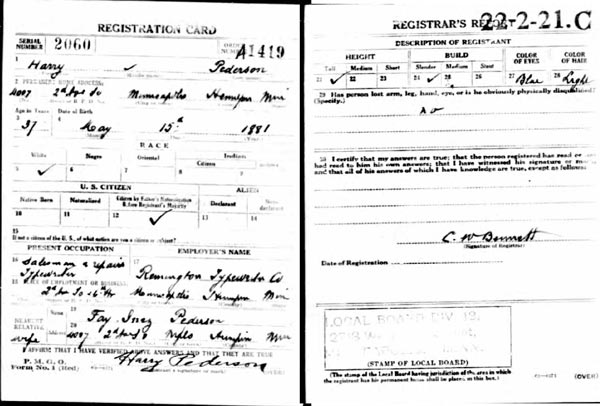 REGISTRATION CARD
SERIAL NUMBER 2060 ORDER NUMBER A1419
1 Harry Pederson
2 PERMANENT HOME ADDRESS:
4007 2nd Ave So Minneapolis Hennepin Min
Age in Years Date of Birth
37 May 15th 1881
RACE
White Negro Oriental Indian
Citizen
5 ✓ 6 7 8 9
U. S. CITIZEN ALIEN
Native Born Naturalized Citizen by Father's Naturalization Before Registrant's Majority Declarant Non-declarant
10 11 12 ✓ 13 14
15
If not a citizen of the U. S., of what nation are you a citizen or subject?
PRESENT OCCUPATION EMPLOYER'S NAME
16 Salesman & repairs 17
Typewriter Remington Typewriter Co
18 PLACE OF EMPLOYMENT OR BUSINESS:
Minneapolis Hennepin Min
NEAREST RELATIVE
19 Fay Inez Pederson
20 wife 4007 2nd Av So Mpls Hennepin Min
I AFFIRM THAT I HAVE VERIFIED ABOVE ANSWERS AND THAT THEY ARE TRUE
P. M. G. O.
Form No. 1 (Red) Harry Pederson (OVER)
REGISTRAR'S REPORT 22-2-21.C
DESCRIPTION OF REGISTRANT
HEIGHT BUILD COLOR OF EYES COLOR OF HAIR
Tall Medium Short Slender Medium Stout
21 ✓ 22 23 24 ✓ 25 26 27 Blue 28 Light
29 Has person lost arm, leg, hand, eye, or is he obviously physically disqualified?
(Specify.)
No
30 I certify that my answers are true; that the person registered has read or
had read to him his own answers; that I have witnessed his signature or
and that all of his answers of which I have knowledge are true, except as follows:
C. W. Bennett
(Signature of Registrar)
Date of Registration
LOCAL BOARD DIV. 12,
(STAMP OF LOCAL BOARD)
(The stamp of the Local Board having jurisdiction of the area in which
the registrant has his permanent home shall be placed in this box.) (OVER)